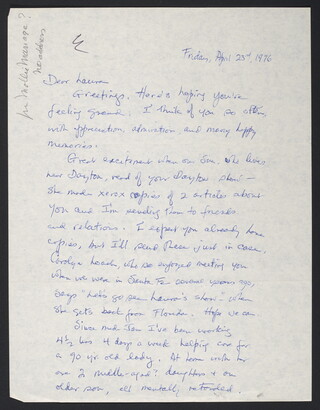 no address
Friday, April 23rd 1976
Dear Laura
Greetings. Here's hoping you're
feeling grand. I think of you so often
with appreciation admiration and many happy
memories.
Great excitement when our Son. who lives
near Dayton, read of your Dayton show -
She made xerox copies of 2 articles about
you and I'm sending them to friends
and relations. I expect you already have
copies, but I'll send these just in case.
Carolyn who so enjoyed meeting you
when we were in Santa Fe several years ago,
says "let's go see Laura's show" - when
she gets back from Florida. Hope we can
Since mid Jan I've been working
4½ hrs 4 days a week helping care for
a 90 yr old lady. At home with her
are 2 middle-aged? daughters & an
older son, all mentally retarded.